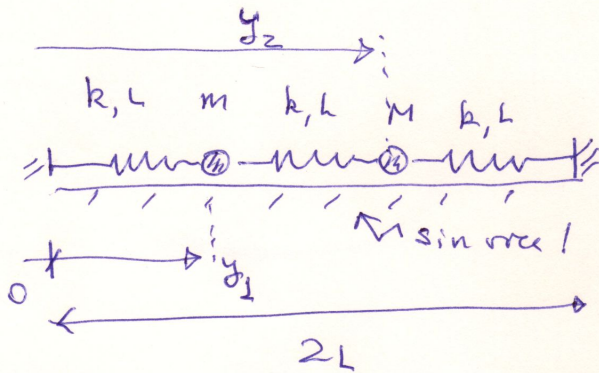 y₂
k, L m k, L M k, L
sin roce!
0 y₁
2L